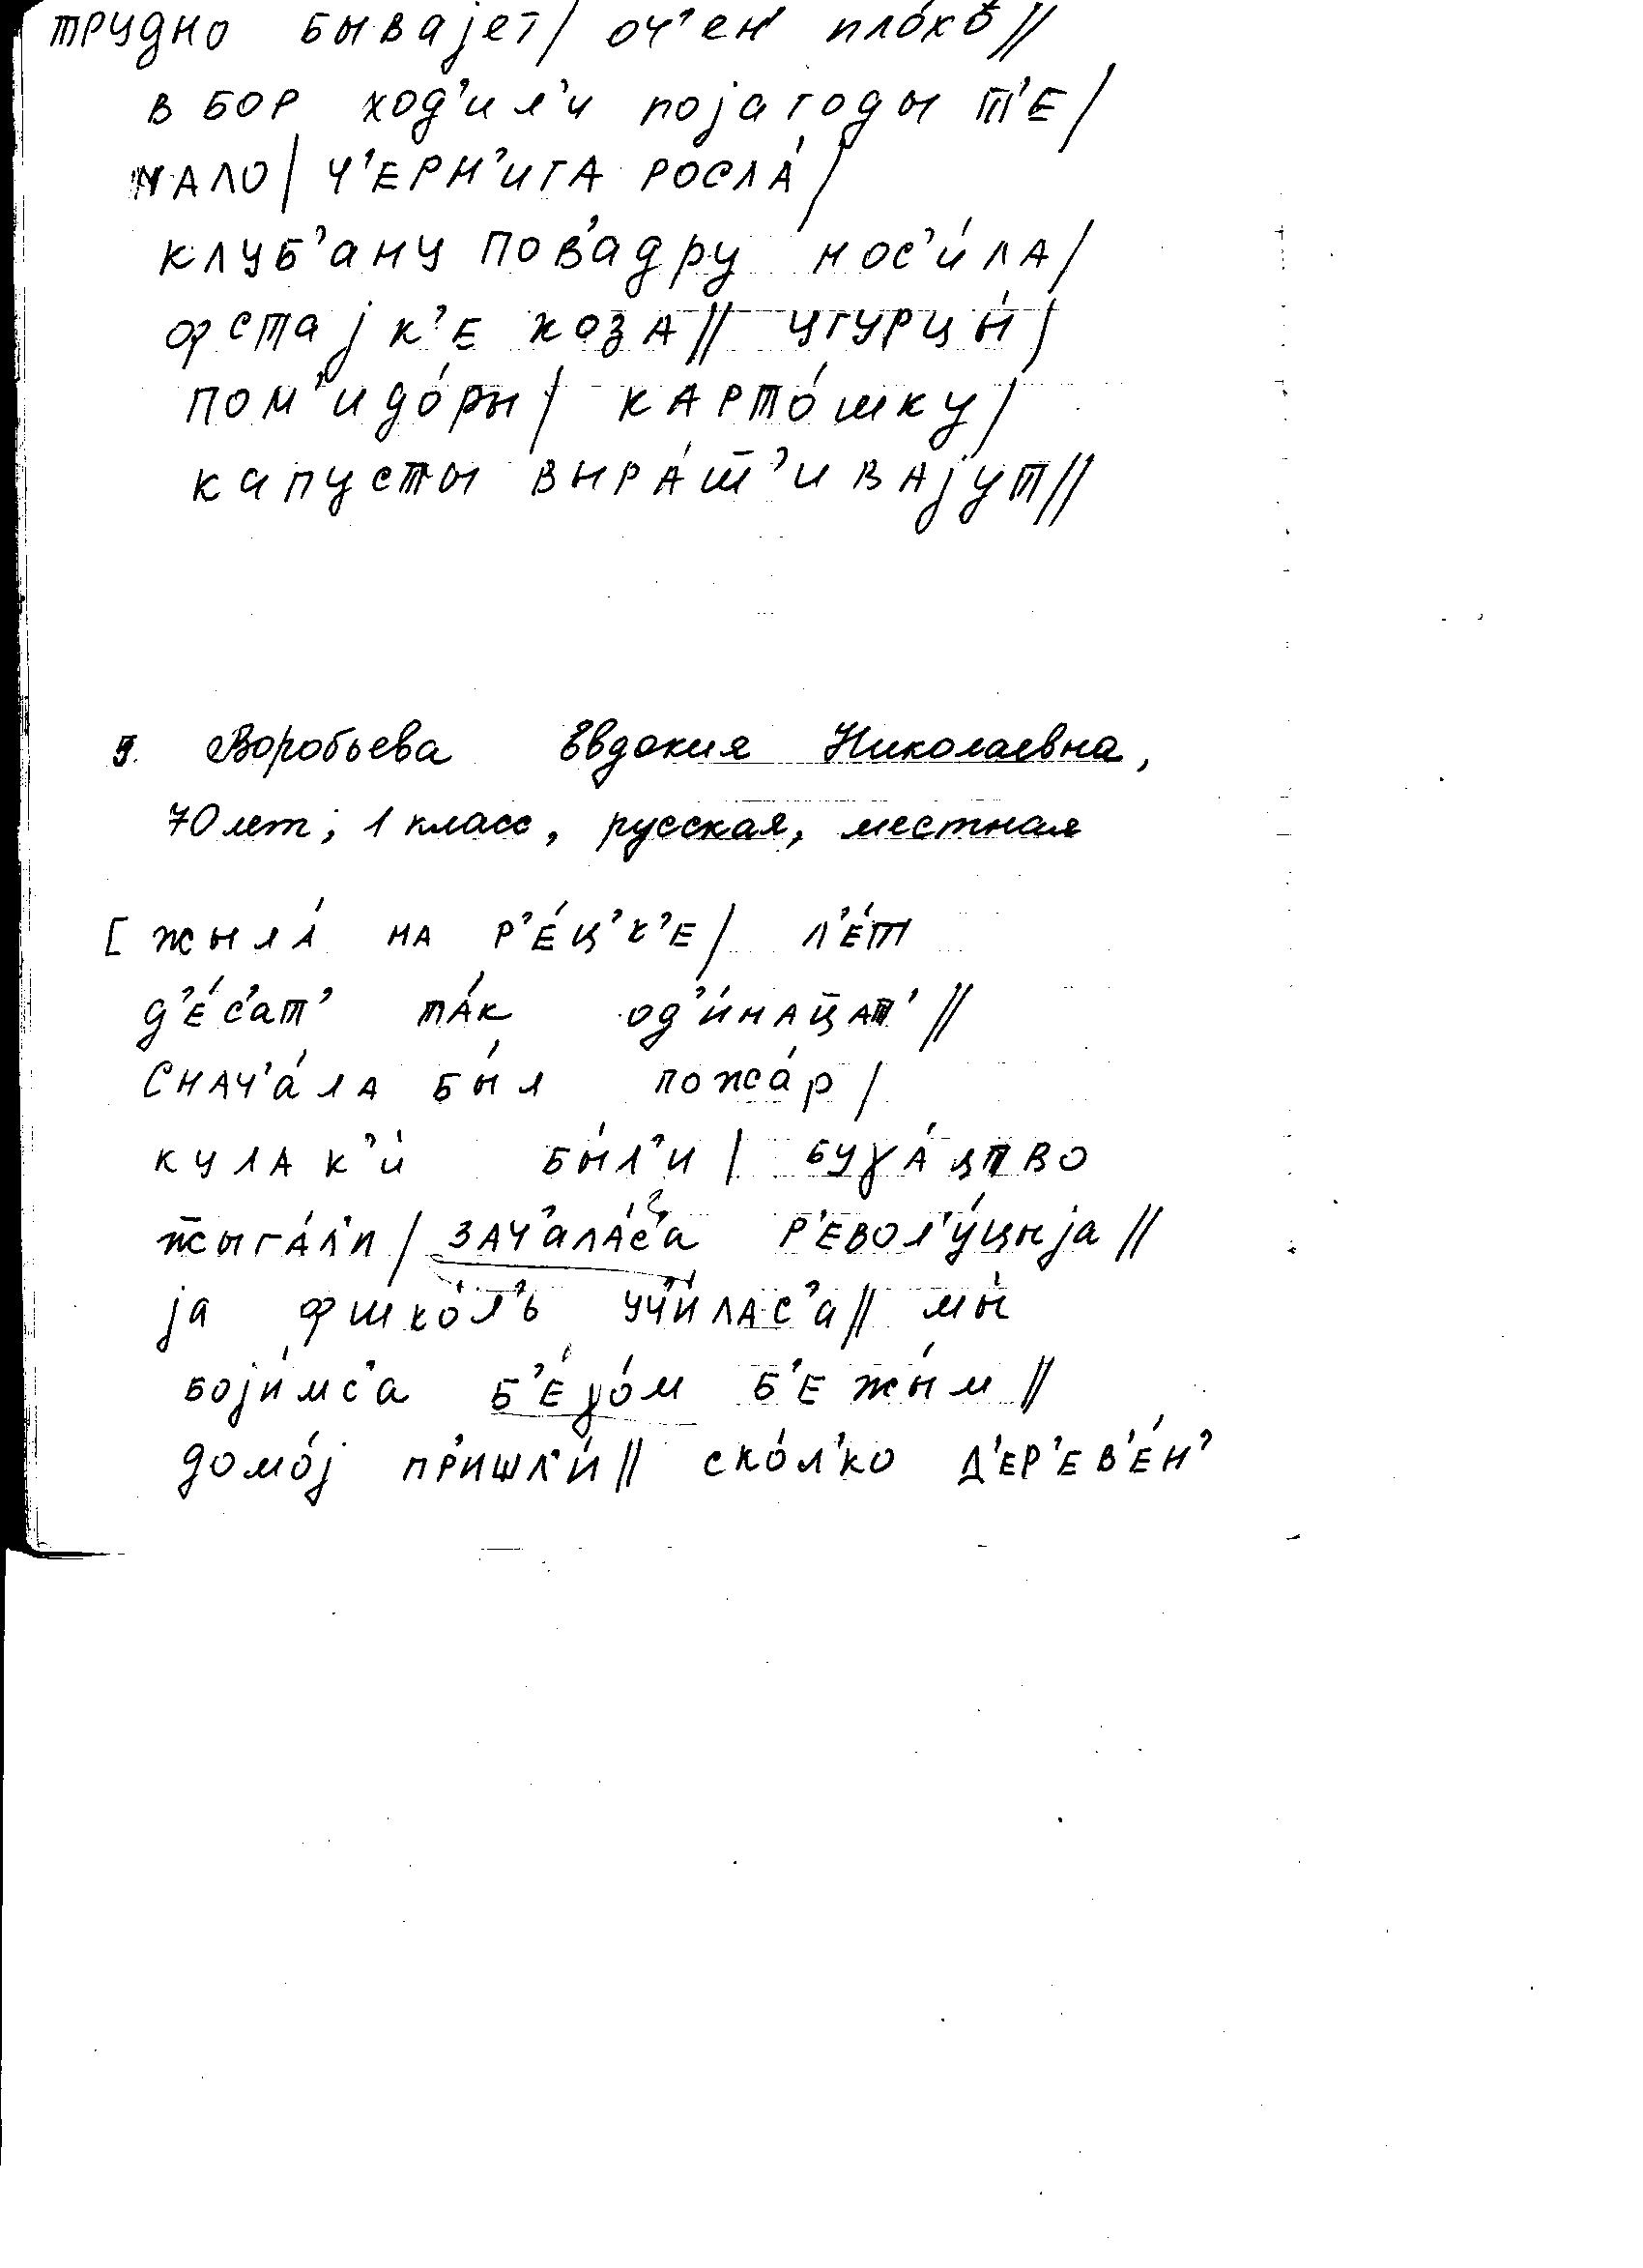 трудно бывајет/ оч’ен’ пло́хъ//
в бор ход’ил’и појагоды т’е/
мало/ ч’ерн’ига росла́/
клуб’ану пов’адру нос’и́ла/
фстајк’е коза// угурцы́/
пом’идо́ры/ карто́шку/
капусты выра́ш̅’ивајут//
5. Воробьева Евдокия Николаевна,
70 лет, 1 класс, русская, местная
[ жыла́ на р’е́ц’к’е/ л’е́т
д’е́с’ат’ та́к од’и́нац̅ат’//
снач’а́ла бы́л пожа́р/
кулак’и́ бы́л’и/ буɣа́цтво
жыга́л’и/ зач’ала́с’а р’евол’у́цыја//
ја фшко́л’ь уч’и́лас’а// мы́
боји́мс’а б’е́ɣо́м б’ежы́м//
домо́ј пр’ишл’и́// ско́л’ко д’ер’ев’е́н’